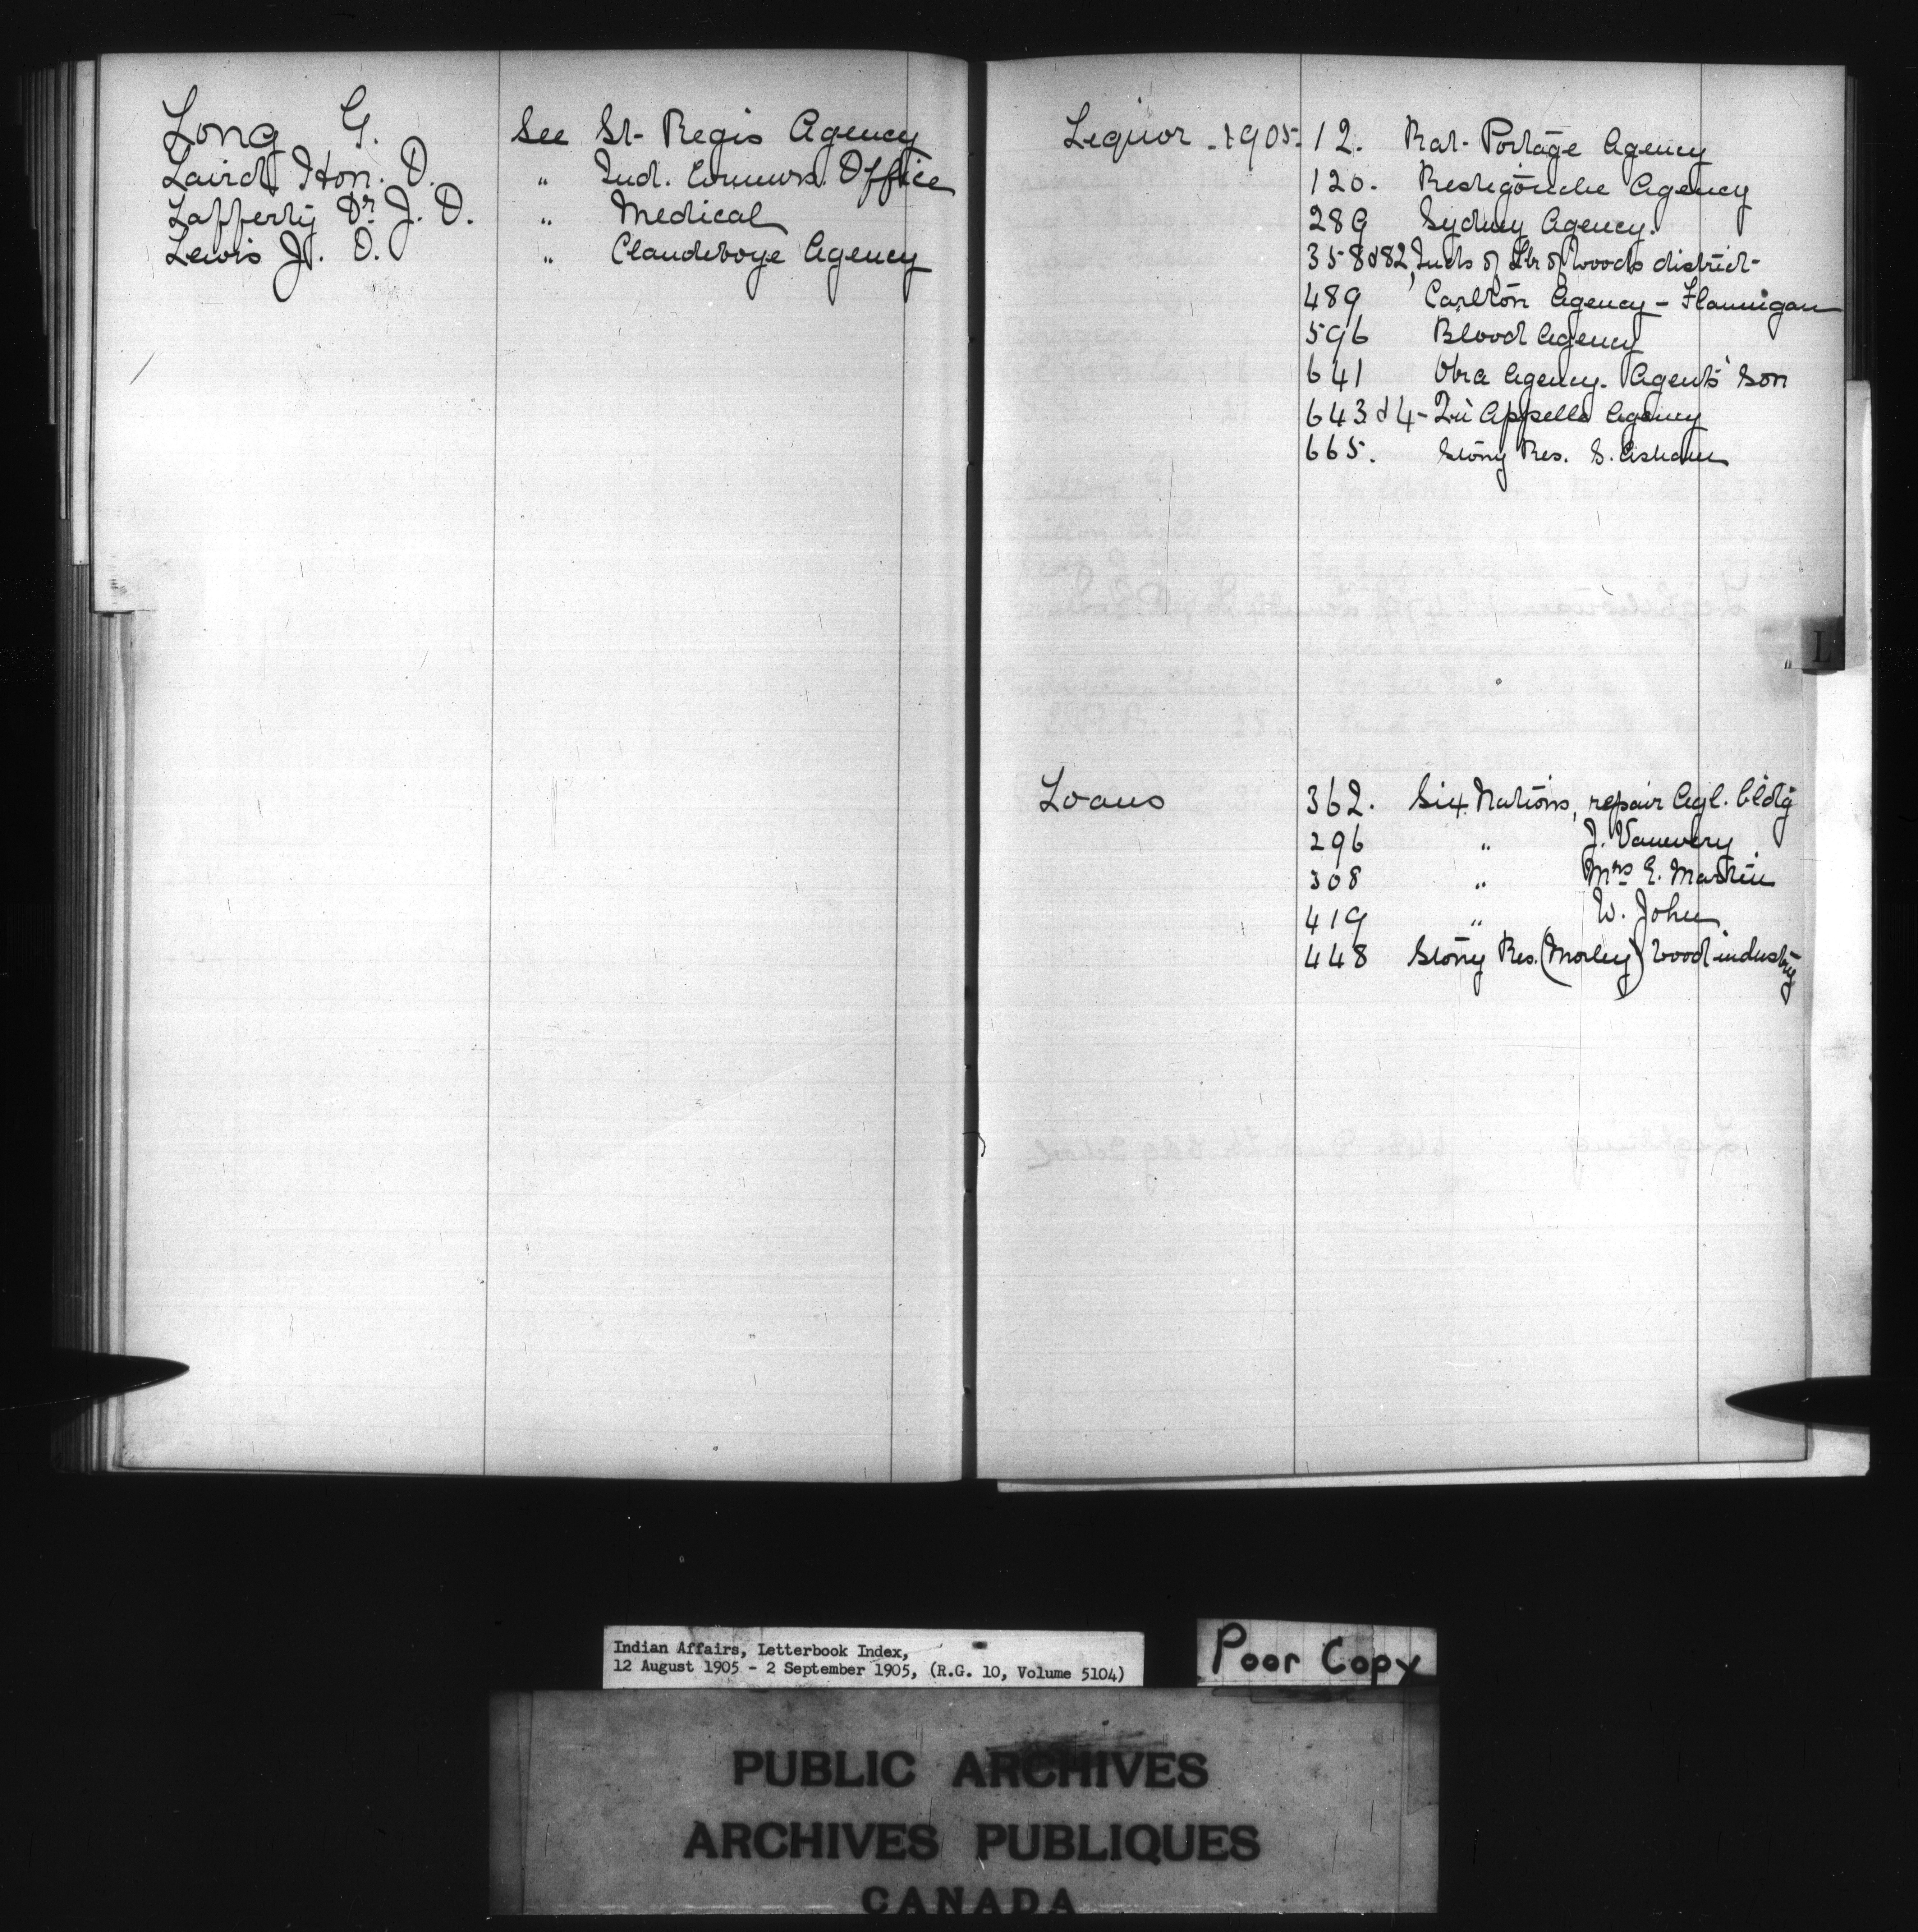 Long G. See St. Regis Agency
Laird Hon. D. " Ind. Commrs. Office
Lafferty Dr. J. D. " Medical
Lewis J. O. " Clandeboye Agency
Liquor - 1905- 12. Rat-Portage Agency
120. Restigouche Agency
289 Sydney Agency.
358 & 82, Inds of Lk of Woods district-
489 Carlton Agency - Flannigan
596 Blood Agency
641 Agency. Agents' Son
643 & 4 - Qu'Appelle Agency
665. Stony Res. S.
Loans 362. Six Nations, repair Agl. bldg
296 " J. Vanevery
308 " Mrs E. Martin
419 " W. John
448 Stony Res. (Morley) wood industry
L
Indian Affairs, Letterbook Index,
12 August 1905 - 2 September 1905, (R.G. 10, Volume 5104)
Poor Copy
PUBLIC ARCHIVES
ARCHIVES PUBLIQUES
CANADA